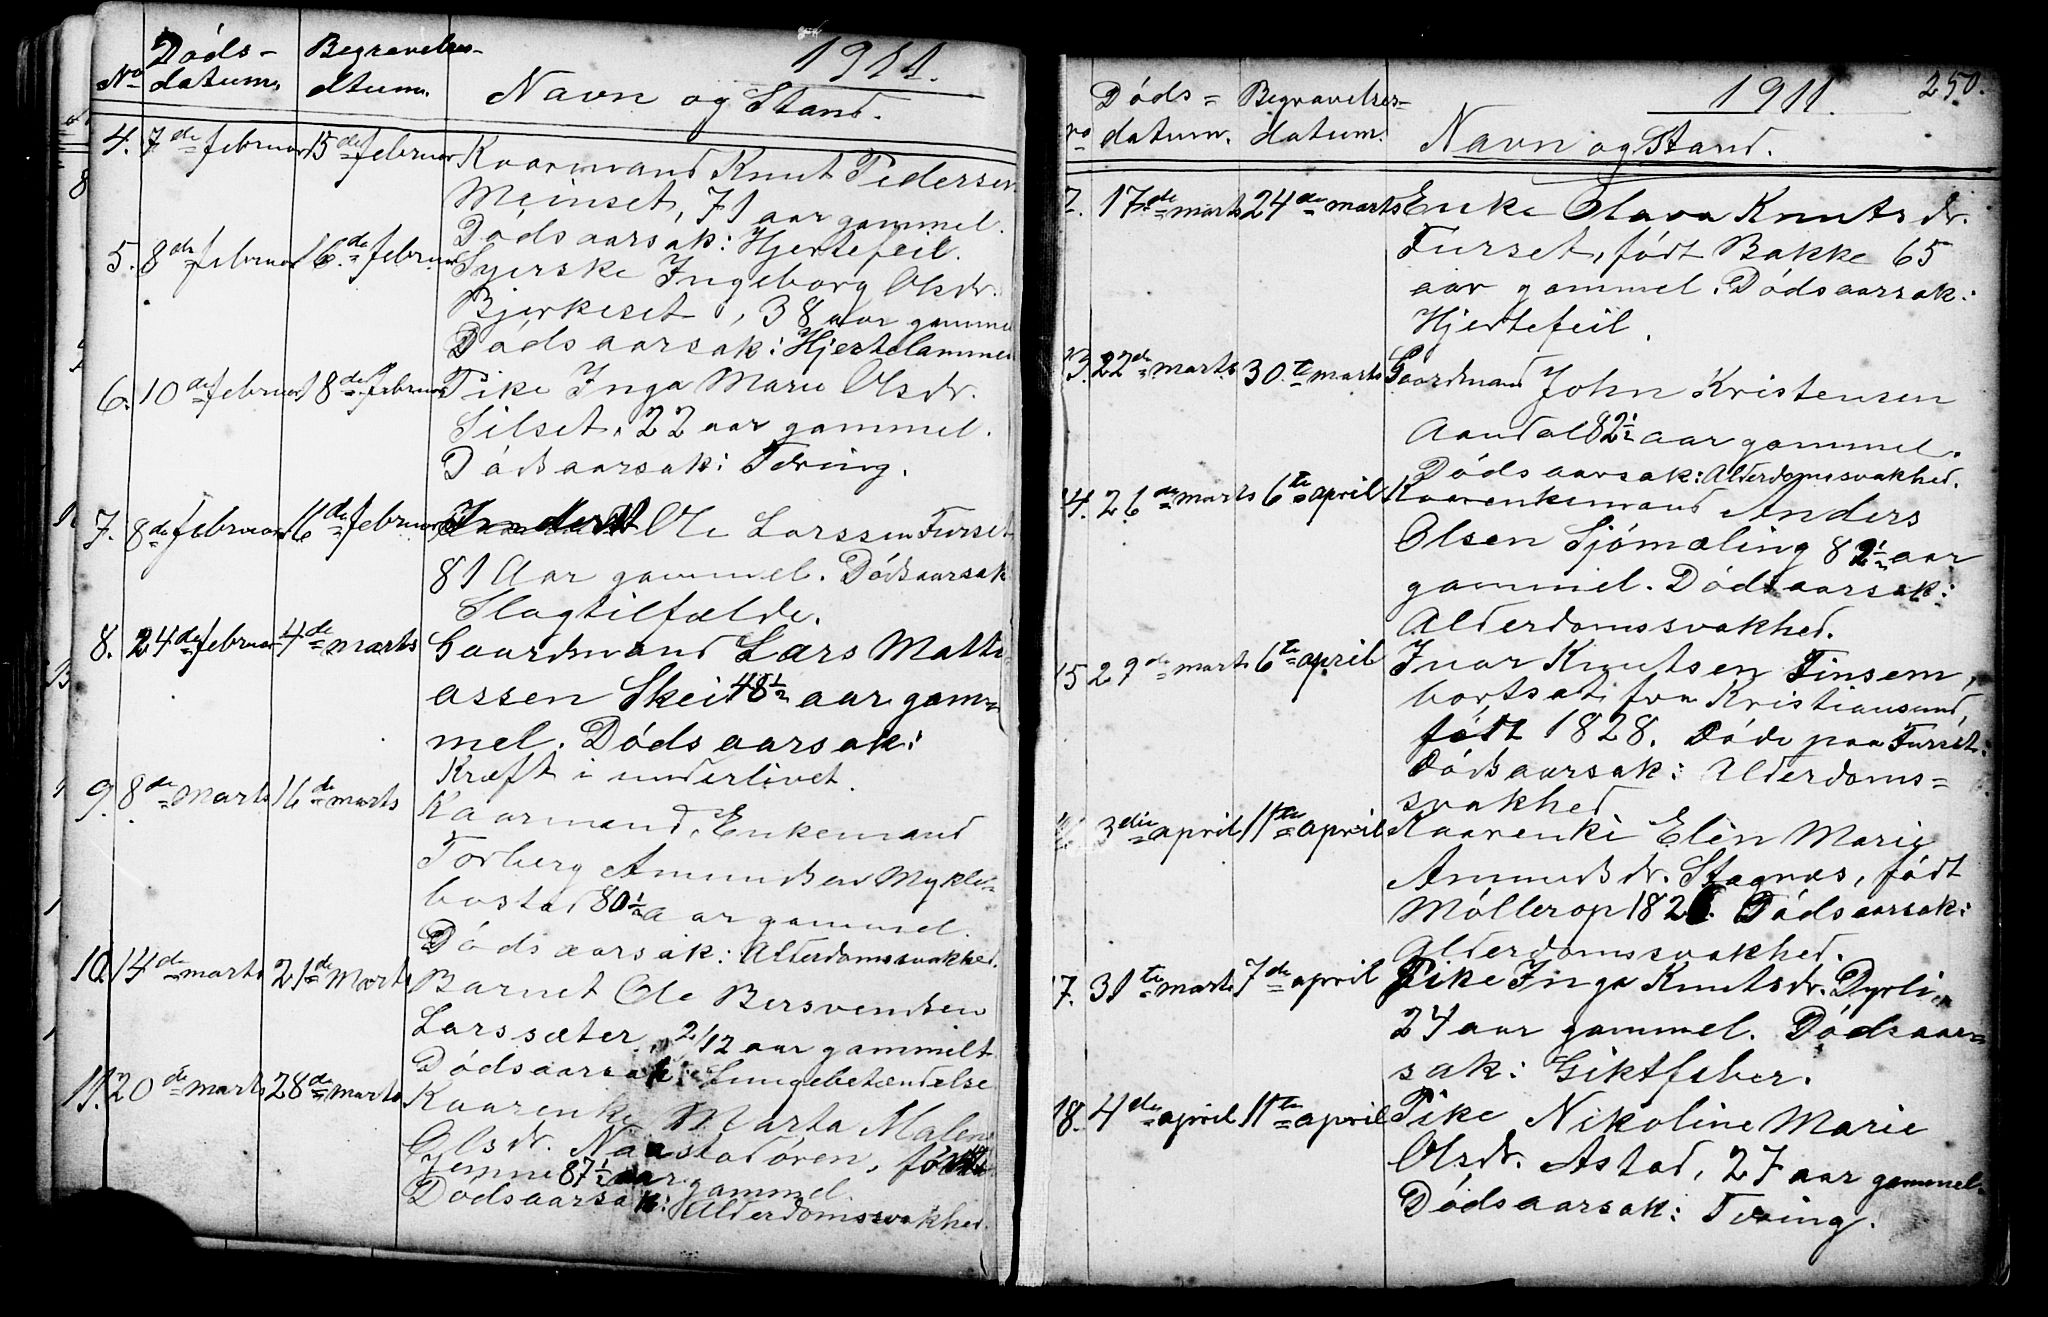 1911.
No Döds- datum. Begravelses- dtum. Navn og Stand.
4. 7de februar 15de februar Kaarmand Knut Pedersen
Meinset, 71 aar gammel.
Dödsaarsak: Hjertefeil.
5. 8de februar 16de februar Syerske Ingeborg Olsdr.
Bjerkeset, 38 aar gammel
Dödsaarsak: Hjertelammelse
6. 10de februar 18de februar Pike Inga Marie Olsdr.
Silset, 22 aar gammel.
Dödsaarsak: Tæring.
7. 8de februar 16de februar Ole Larssen Furset
81 Aar gammel. Dödsaarsak
Slagtilfælde.
8. 24de februar 4de marts Gaardmand Lars Matti-
assen Skei 48½ aar gam-
mel. Dödsaarsak:
Kræft i underlivet.
9. 8de marts 16de marts Kaarmand, Enkemand
Torberg Amundsen Mykle-
bostad 80½ aar gammel.
Dödsaarsak: Alderdomssvakhed.
10. 14de marts 21de Marts Barnet Ole Bersvendsen
Larssæter, 2/12 aar gammelt
Dödsaarsak: Lungebetændelse
11. 20de marts 28de marts Kaarenke Marta Malene
Olsdr. Naastadören, födt
Gjemne 87½ aar gammel.
Dödsaarsak: Alderdomssvakhed.
1911. 250.
No Döds- datum. Begravelses- datum. Navn og Stand.
2. 17de marts 24de marts Enke Olava Knutsdr.
Furset, födt Bakke 65
aar gammel. Dödsaarsak:
Hjertefeil.
13. 22de marts 30te marts Gaardmand John Kristensen
Aandal 82½ aar gammel.
Dödsaarsak: Alderdomssvakhed.
14. 26de marts 6te april Kaarenkemand Anders
Olsen Sjömæling 82½ aar
gammel. Dödsaarsak:
Alderdomssvakhed.
15 29de marts 6te april Ivar Knutsen Tinsem,
bortsat fra Kristiansund,
födt 1828. Döde paa Furset.
Dödsaarsak: Alderdoms-
svakhed.
3die april 11te april Kaarenke Elen Marie
Amundsdr. Stagnæs, födt
Möllerop 1826. Dödsaarsak:
Alderdomssvakhed.
17. 31te marts 7de april Pike Inga Knutsdr. Dyrli
24 aar gammel. Dödsaar-
sak: Giktfeber.
18. 4de april 11te april Pike Nikoline Marie
Olsdr. Astad, 27 aar gammel.
Dödsaarsak: Tæring.